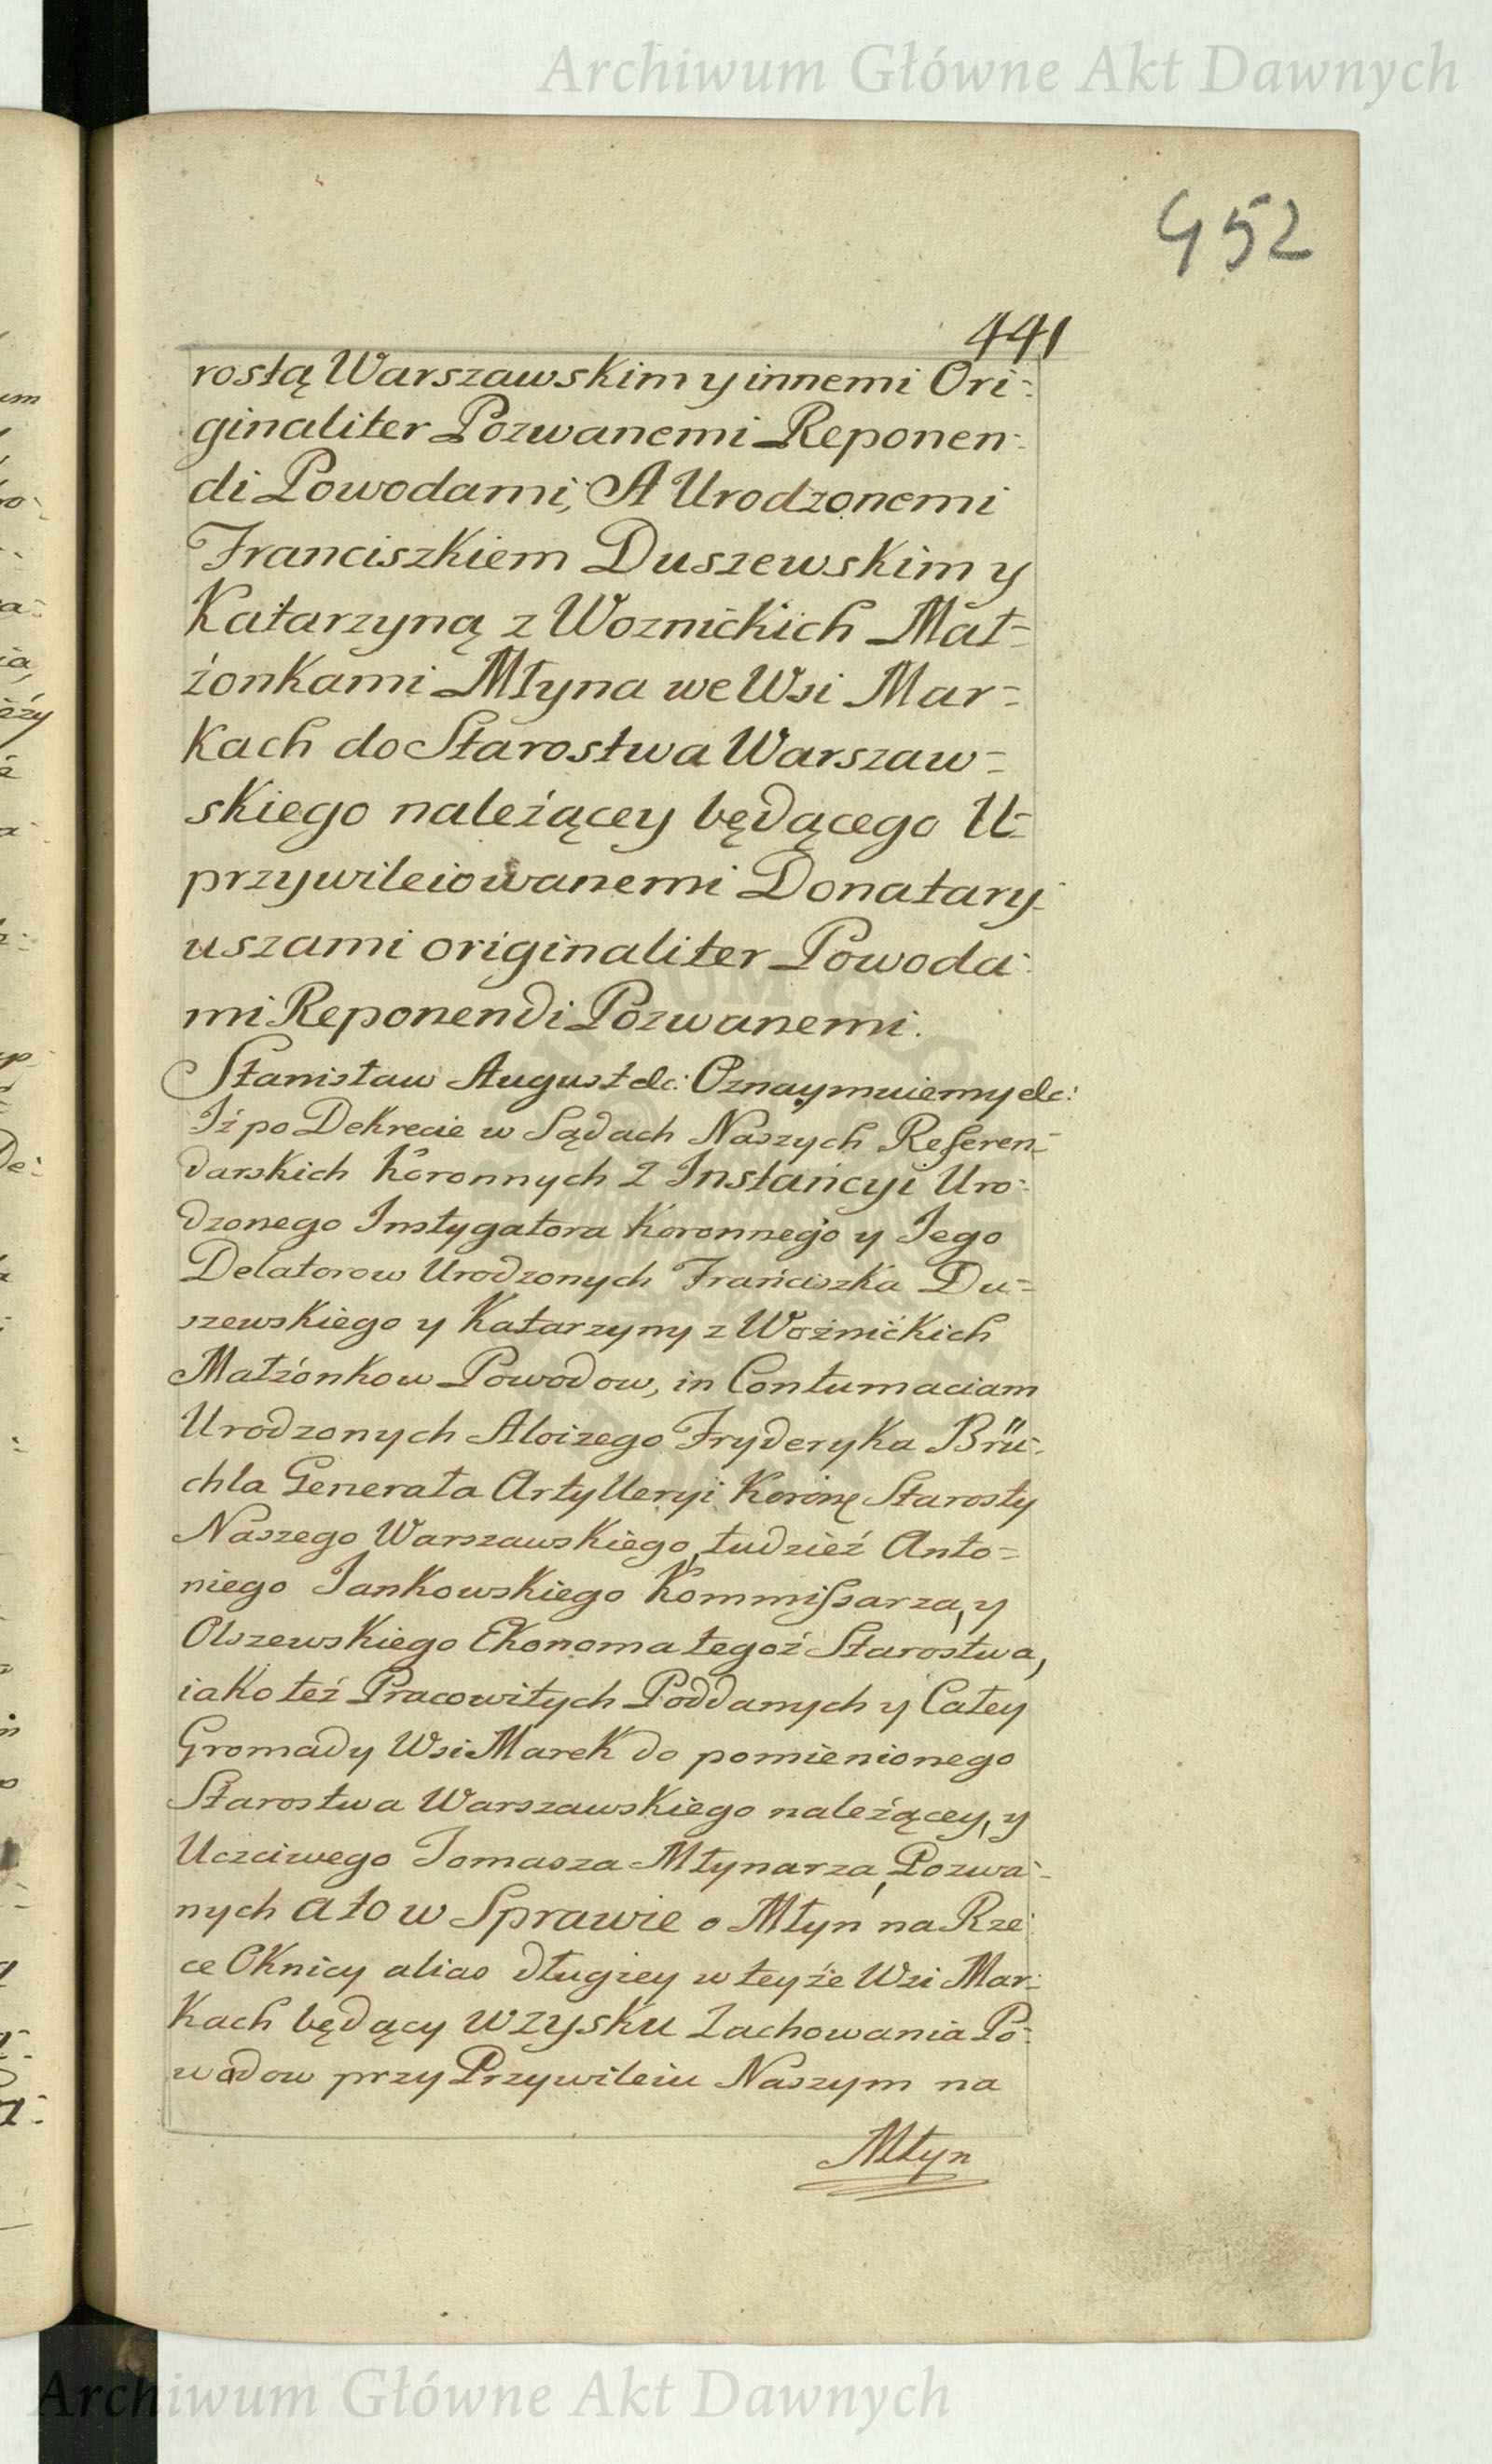 Archiwum Główne Akt Dawnych
452
441
rostą Warszawskim y innemi Ori-
ginaliter Pozwanemi Reponen-
di Powodami, A Urodzonemi
Franciszkiem Duszewskim y
Katarzyną z Woznickich Mał-
żonkami Młyna we Wsi Mar-
kach do Starostwa Warszaw-
skiego należącey będącego U-
przywileiowanemi Donatary-
uszami originaliter Powoda-
mi Reponendi Pozwanemi.
Stanisław August etc: Oznaymuiemy etc:
Iż po Dekrecie w Sądach Naszych Referen-
darskich Koronnych z Instancyi Uro-
dzonego Instygatora Koronnego y Iego
Delatorow Urodzonych Franciszka Du-
szewskiego y Katarzyny z Woźnickich
Małżonkow Powodow, in Contumaciam
Urodzonych Aloizego Fryderyka Brü-
chla Generała Artylleryi Koronę Starosty
Naszego Warszawskiego, tudzież Anto-
niego Iankowskiego Kommissarza, y
Olszewskiego Ekonoma tegoż Starostwa,
iako też Pracowitych Poddanych y Całey
Gromady Wsi Marek do pomienionego
Starostwa Warszawskiego należącey, y
Uczciwego Tomasza Młynarza, Pozwa-
nych a to w Sprawie o Młyn na Rze-
ce Oknicy alias długiey w teyże Wsi Mar-
kach będący w zysku Zachowania Po-
wodow przy Przywileiu Naszym na
Młyn
Archiwum Główne Akt Dawnych